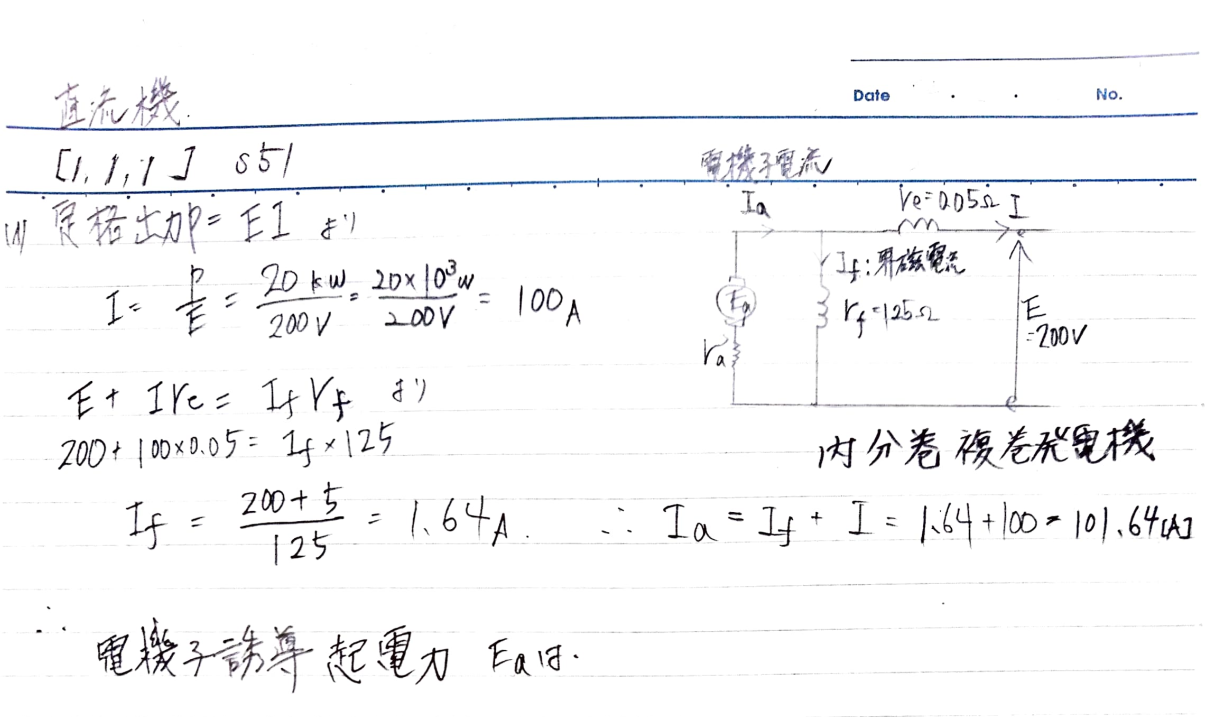 直流機.
Date . . No.
[1, 1, 1] S51
電機子電流
(1) 定格出力P = EI より
Ia
re=0.05Ω I
I = P/E = 20kW/200V = 20×10³W/200V = 100A
If:界磁電流
Ea
rf=125Ω
E
=200V
ra
E + Ire = If rf より
200+100×0.05 = If×125
内分巻複巻発電機
If = 200+5/125 = 1.64A. ∴ Ia = If + I = 1.64+100 = 101.64[A]
∴ 電機子誘導起電力 Eaは.